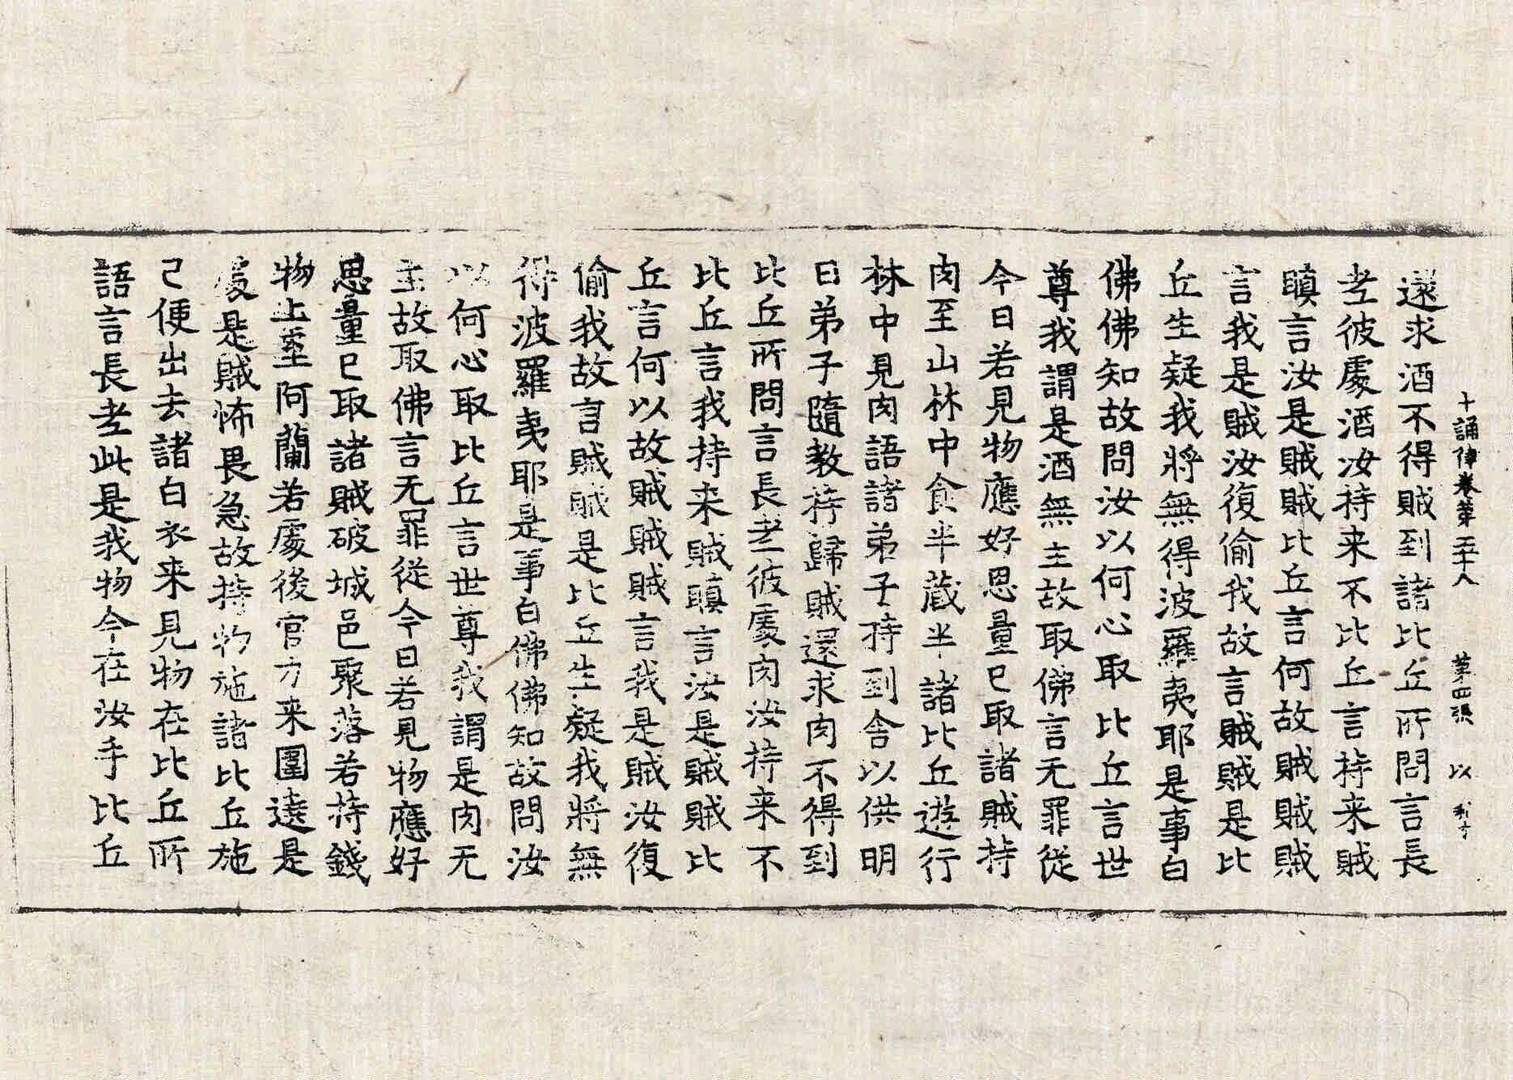 十誦律卷第五十八　第四張　以
還求酒不得賊到諸比丘所問言長
老彼處酒汝持来不比丘言持来賊
瞋言汝是賊賊比丘言何故賊賊賊
言我是賊汝復偷我故言賊賊是比
丘生疑我將無得波羅夷耶是事白
佛佛知故問汝以何心取比丘言世
尊我謂是酒無主故取佛言无罪從
今日若見物應好思量已取諸賊持
肉至山林中食半藏半諸比丘遊行
林中見肉語諸弟子持到舎以供明
日弟子隨教持歸賊還求肉不得到
比丘所問言長老彼處肉汝持来不
比丘言我持来賊瞋言汝是賊賊比
丘言何以故賊賊賊言我是賊汝復
偷我故言賊賊是比丘生疑我將無
得波羅夷耶是事白佛佛知故問汝
以何心取比丘言世尊我謂是肉无
主故取佛言无罪從今日若見物應好
思量已取諸賊破城邑聚落若持錢
物上至阿蘭若處後官力来圍遶是
處是賊怖畏急故持物施諸比丘施
已便出去諸白衣来見物在比丘所
語言長老此是我物今在汝手比丘